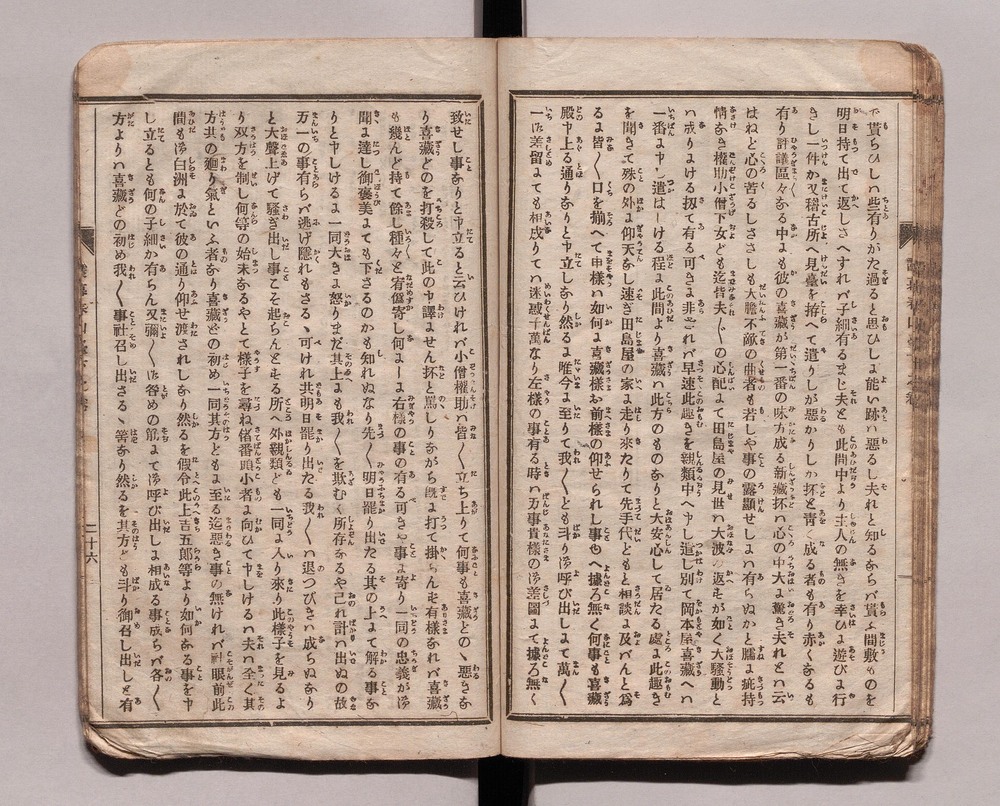 て貰らひしハ些有りがた過ると思ひしよ能い跡ハ悪るし夫れと知るあらバ貰ふ間敷ものを
明日持て出て返しさへすれバ子細有るまじ夫とも此間中より主人の無きを幸ひよ遊びよ行
きし一件か又稽古所へ見臺を拵へて遣りしが悪るかりしか抔と靑く成る者も有り赤くあるも
有り評議區々ある中よも彼の喜藏が第一番の味方成る新藏抔ハ心の中大よ驚き夫れとハ云
はねど心の苦るしさ大膽不敵の曲者も若しや事の露顯せしよハ有らぬかと臑よ疵持
情あき權助小僧下女ども迄皆夫〱の心配よて田島屋の見世ハ大波の返モが如く大騷動と
ハ成りよける扨て有る可きよ非ざれバ早速此趣きを親類中へ申し遣し別て岡本屋喜藏へハ
一番よ申し遣はしける程よ此間より喜藏ハ此方のものありと大安心して居たる處よ此趣き
を聞きて殊の外よ仰天し速き田島屋の家よ走り來たりて先手代どもと相談よ及バんと爲
るよ皆〱口を揃へて申樣ハ如何よ喜藏樣お前樣の仰せられし事ゆへ據ろ無く何事も喜藏
殿申上る通りありと申立しあり然るよ唯今よ至りて我〱ども斗り御呼び出しよて萬〱
一御差留よても相成りてハ迷惑千萬なり左樣の事有る時ハ万事貴樣の御差圖よて據ろ無く
致せし事ありと申立ると云ひけれバ小僧權助ハ皆〱立ち上りて何事も喜藏どのゝ惡さあ
り喜藏どのを打殺して此の申譯よせん抔と罵しりあがら既よ打て掛らんモ有樣あれバ喜藏
も幾んど持て餘し種々と宥偪寄し何よーよ右樣の事の有る可きや事よ寄り一同の忠義が御
聞よ達し御褒美よても下さるのかも知れぬなり先〱明日罷り出たる其の上よて解る事あ
りと申しけるよ一同大きよ怒りまだ其上よも我〱を欺むく所存あるや己れ計ハ出ぬの故
万一の事有らバ逃げ隱れもさるゝ可けれ共明日罷り出たる我〱ハ退つぴきハ成らぬあり
と大聲上げて騷ぎ出し事こそ起らんとモる所へ外親類ども一同よ入り來り此樣子を見るよ
り双方を制し何等の始末あるやとて樣子を尋ね偖番頭小者よ向ひて申しけるハ夫ハ全く其
方共の廻り氣といふ者あり喜藏どの初め一同其方ともよ至る迄惡き事の無けれバ神眼前此
間も御白洲よ於て彼の通り仰せ渡されしあり然るを假令此上吉五郞等より如何ある事を申
し立るとも何の子細か有らん又彌〱御咎めの筋よて御呼び出しよ相成る事成らバ各〱
方よりハ喜藏どの初め我〱事社召し出さるゝ筈あり然るを其方ども斗り御召し出しと有
二十六